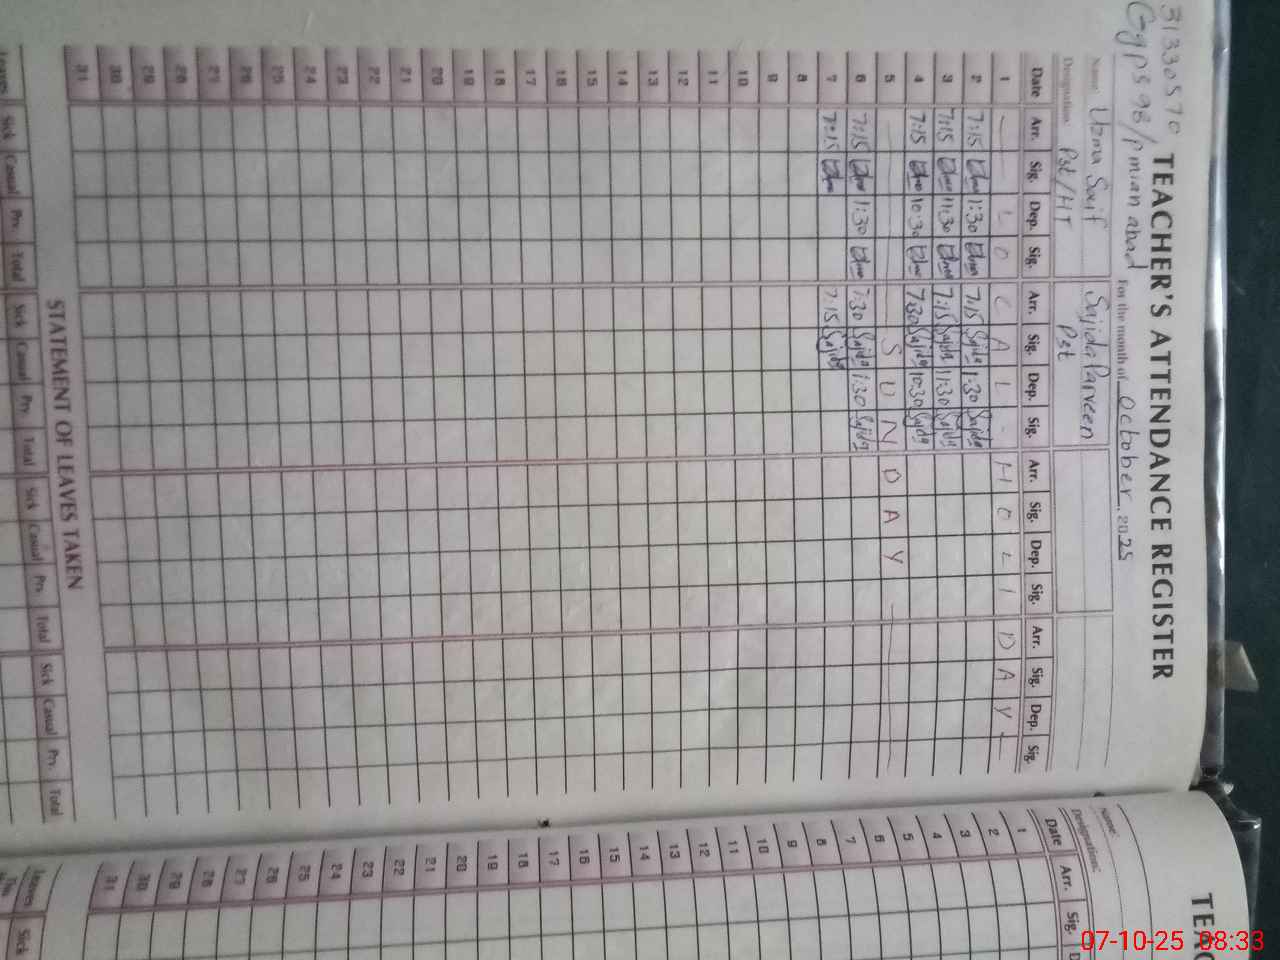 31330570
TEACHER'S ATTENDANCE REGISTER
Ggps 98/p mian abad For the month of October 2025
Name Uzma Saif Sajida Parveen
Designation Pst/HT Pst
Date Arr. Sig. Dep. Sig. Arr. Sig. Dep. Sig. Arr. Sig. Dep. Sig. Arr. Sig. Dep. Sig.
1 — L O C A L - H O L I D A Y —
2 7:15 1:30 7:15 Sajida 1:30 Sajida
3 7:15 11:30 7:15 Sajida 11:30 Sajida
4 7:15 10:30 7:30 Sajida 10:30 Sajida
5 — S U N D A Y —
6 7:15 1:30 7:30 Sajida 1:30 Sajida
7 7:15 7:15 Sajida
8
9
10
11
12
13
14
15
16
17
18
19
20
21
22
23
24
25
26
27
28
29
30
31
STATEMENT OF LEAVES TAKEN
Leaves Sick Casual Prv. Total Sick Casual Prv. Total Sick Casual Prv. Total Sick Casual Prv. Total
TEAC
Name:
Designation:
Date Arr. Sig. D
1
2
3
4
5
6
7
8
9
10
11
12
13
14
15
16
17
18
19
20
21
22
23
24
25
26
27
28
29
30
31
Leaves Sick
07-10-25 08:33